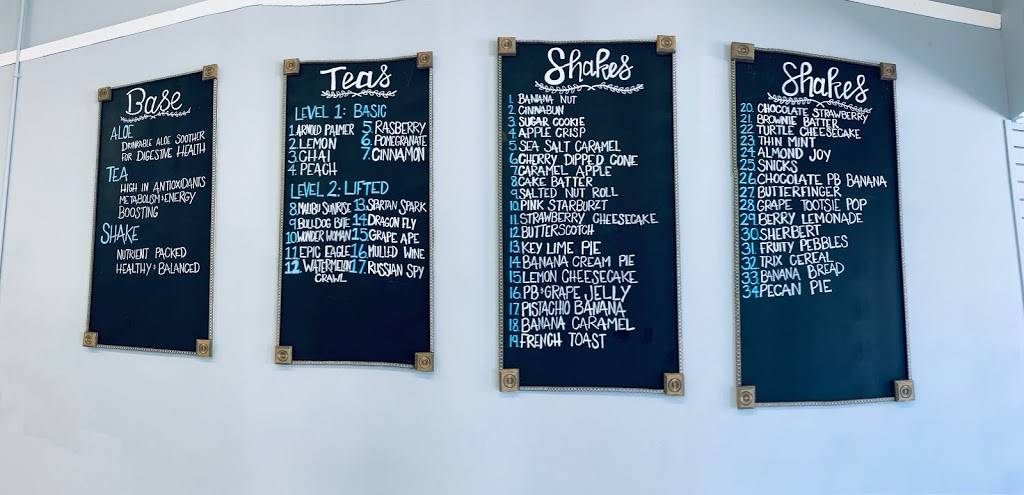 Base
ALOE
DRINKABLE ALOE SOOTHER
FOR DIGESTIVE HEALTH
TEA
HIGH IN ANTIOXIDANTS
METABOLISM & ENERGY
BOOSTING
SHAKE
NUTRIENT PACKED
HEALTHY & BALANCED
Teas
LEVEL 1: BASIC
1. ARNOLD PALMER
2. LEMON
3. CHAI
4. PEACH
5. RASBERRY
6. POMEGRANATE
7. CINNAMON
LEVEL 2: LIFTED
8. MALIBU SUNRISE
9. BULLDOG BITE
10. WONDER WOMAN
11. EPIC EAGLE
12. WATERMELON
CRAWL
13. SPARTAN SPARK
14. DRAGON FLY
15. GRAPE APE
16. MULLED WINE
17. RUSSIAN SPY
Shakes
1. BANANA NUT
2. CINNABUN
3. SUGAR COOKIE
4. APPLE CRISP
5. SEA SALT CARAMEL
6. CHERRY DIPPED CONE
7. CARAMEL APPLE
8. CAKE BATTER
9. SALTED NUT ROLL
10. PINK STARBURST
11. STRAWBERRY CHEESECAKE
12. BUTTERSCOTCH
13. KEY LIME PIE
14. BANANA CREAM PIE
15. LEMON CHEESECAKE
16. PB & GRAPE JELLY
17. PISTACHIO BANANA
18. BANANA CARAMEL
19. FRENCH TOAST
Shakes
20. CHOCOLATE STRAWBERRY
21. BROWNIE BATTER
22. TURTLE CHEESECAKE
23. THIN MINT
24. ALMOND JOY
25. SNICKS
26. CHOCOLATE PB BANANA
27. BUTTERFINGER
28. GRAPE TOOTSIE POP
29. BERRY LEMONADE
30. SHERBERT
31. FRUITY PEBBLES
32. TRIX CEREAL
33. BANANA BREAD
34. PECAN PIE